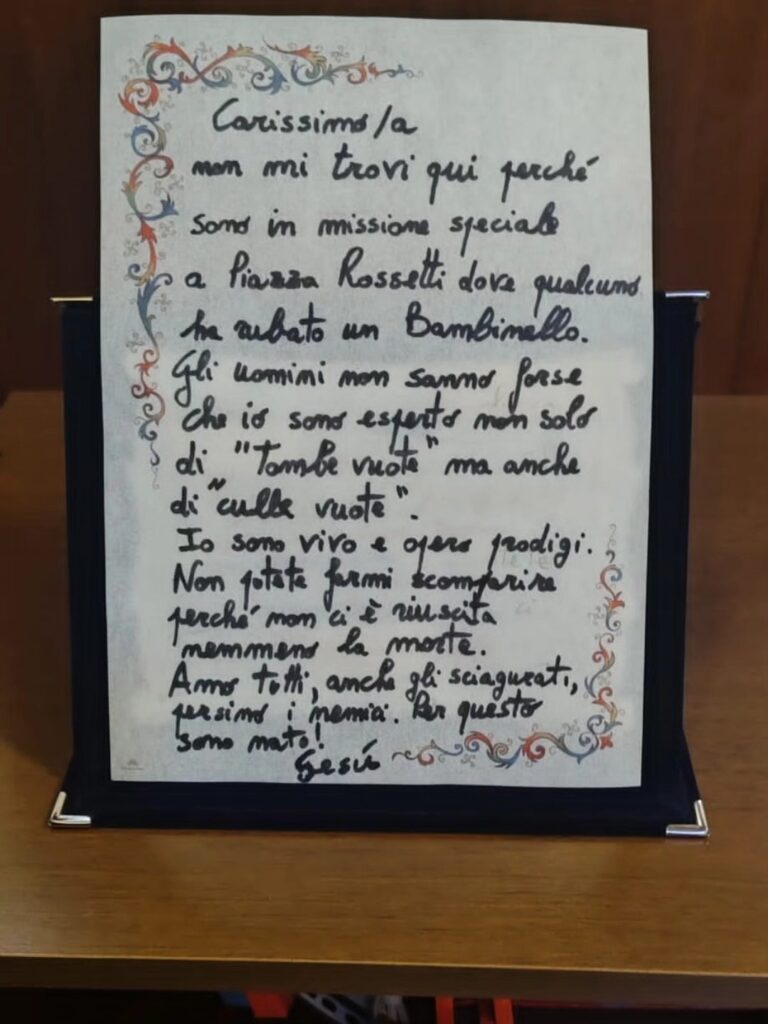 Carissimo/a
non mi trovi qui perché
sono in missione speciale
a Piazza Rossetti dove qualcuno
ha rubato un Bambinello.
Gli uomini non sanno forse
che io sono esperto non solo
di "Tombe vuote" ma anche
di "culle vuote".
Io sono vivo e opero prodigi.
Non potete farmi scomparire
perché non ci è riuscita
nemmeno la morte.
Amo tutti, anche gli sciagurati,
persino i nemici. Per questo
sono nato!
Gesù